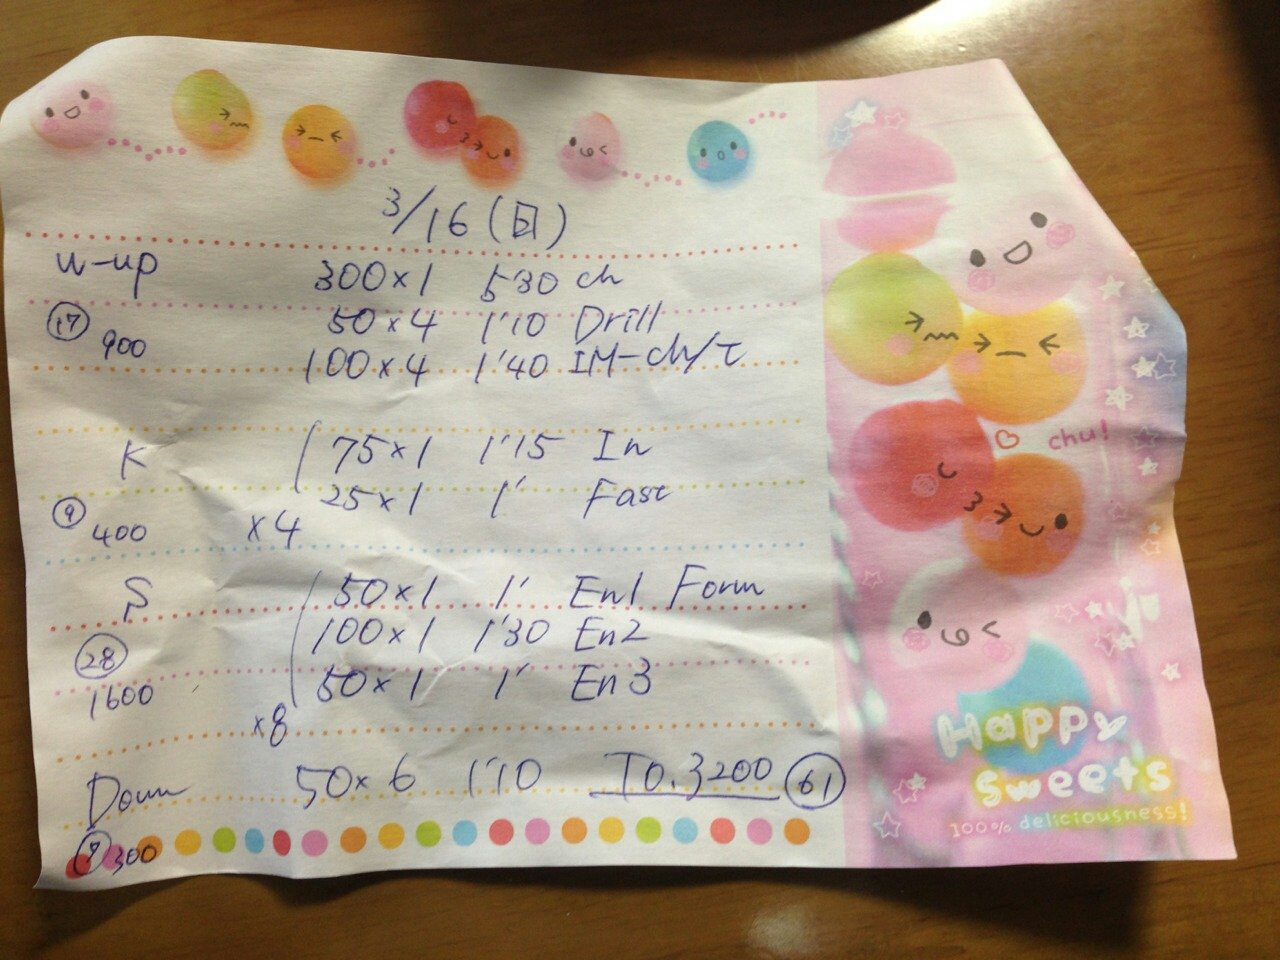 3/16 (日)
W-up 300×1 5'30 ch
⑰ 900 50×4 1'10 Drill
100×4 1'40 IM-ch/t
K 75×1 1'15 In
⑨ 400 ×4 25×1 1' Fast
S 50×1 1' En1 Form
㉘ 100×1 1'30 En2
1600 50×1 1' En3
×8
Down 50×6 1'10 TO.3200 (61)
⑦ 300
chu!
Happy
sweets
100% deliciousness!